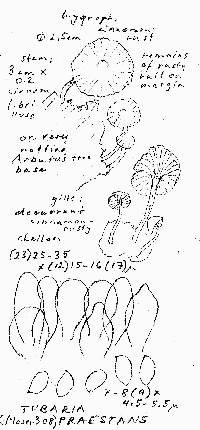 hygroph.
cinnamon
Ø 2,5cm rust
stem:
3 cm x
0.2
cinnam.
fibri
llose
remains
of rusty
veil on
margin
on very
rotting
Arbutus tree
base
gills:
decurrent
cinnamon-
rusty
cheilos:
(23)25-35
x (12)15-16(17)µ
7-8(9)x
4.5-5.5µ
TUBARIA
(Moser 308) PRAESTANS